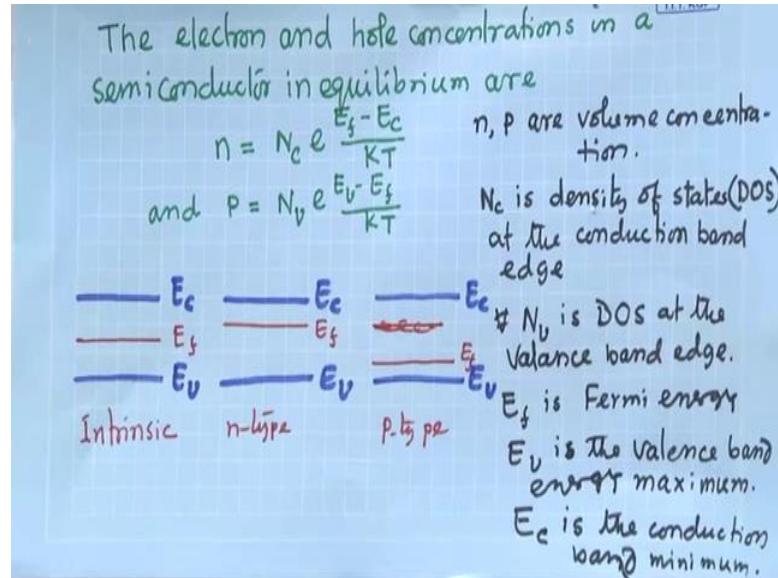 The electron and hole concentrations in a
semiconductor in equilibrium are
n = N_c e^{(E_f - E_c)/KT}
and P = N_v e^{(E_v - E_f)/KT}
n, P are volume concentra-
tion.
N_c is density of states (DOS)
at the conduction band
edge
N_v is DOS at the
valance band edge.
E_f is Fermi energy
E_v is the valence band
energy maximum.
E_c is the conduction
band minimum.
E_c
E_f
E_v
Intrinsic
E_c
E_f
E_v
n-type
E_c
E_f
E_v
P-type